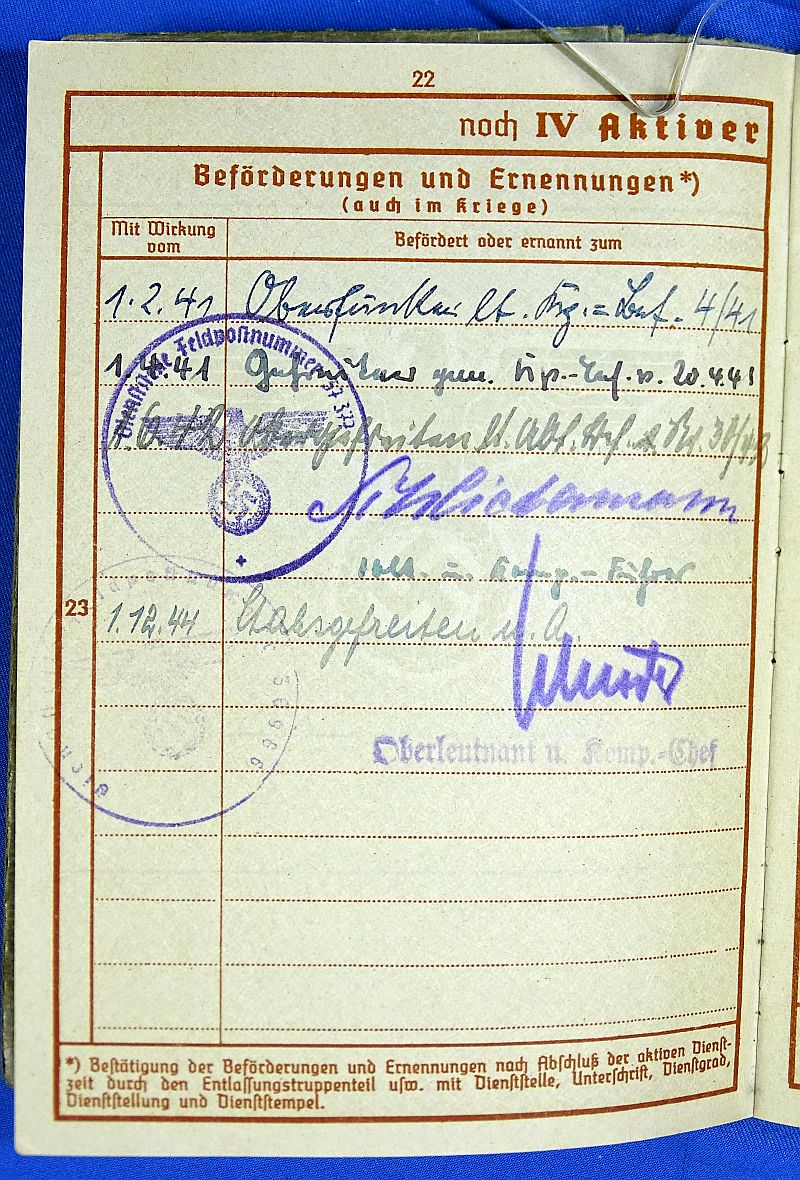 22
noch IV Aktiver
Beförderungen und Ernennungen*)
(auch im Kriege)
Mit Wirkung
vom
Befördert oder ernannt zum
1.2.41 Oberfunker lt. Kp.=Bef. 4/41
1.4.41 Gefreiten gem. Kp.-Bef. v. 20.4.41
Dienststelle Feldpostnummer
1.6.42 Obergefreiten lt. Abt.
u. Komp.-Führer
23
1.12.44 Stabsgefreiten
36966
Oberleutnant u. Komp.-Chef
*) Bestätigung der Beförderungen und Ernennungen nach Abschluß der aktiven Dienst-
zeit durch den Entlassungstruppenteil usw. mit Dienststelle, Unterschrift, Dienstgrad,
Dienststellung und Dienststempel.